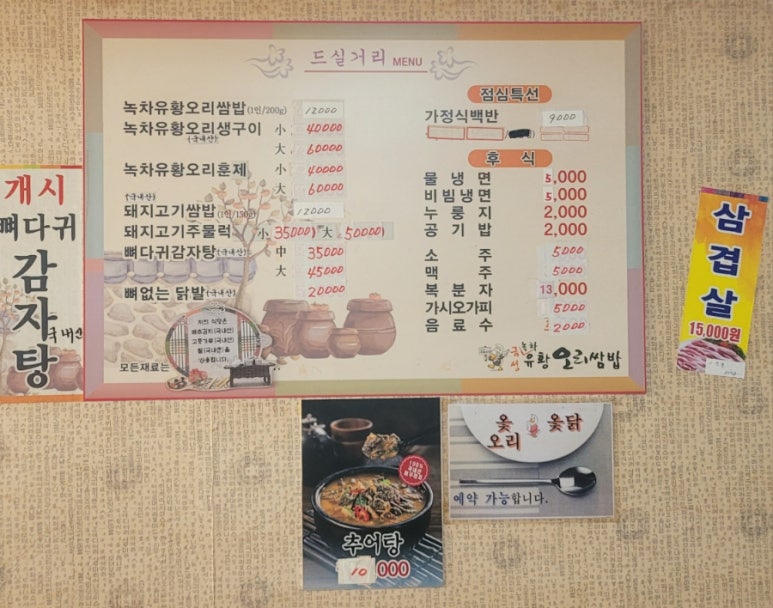 드실거리 MENU
녹차유황오리쌈밥(1인/200g) 12000
녹차유황오리생구이 小 40000
(국내산) 大 60000
녹차유황오리훈제 小 40000
(국내산) 大 60000
돼지고기쌈밥(1인/150g) 12000
돼지고기주물럭 小 35000 大 50000
뼈다귀감자탕(국내산) 中 35000
大 45000
뼈없는 닭발(국내산) 20000
저희 식당은
배추김치(국내산)
고춧가루(국내산)
쌀(국내산)을
사용합니다.
모든재료는
점심특선
가정식백반 9000
후 식
물 냉 면 5,000
비 빔 냉 면 5,000
누 룽 지 2,000
공 기 밥 2,000
소 주 5000
맥 주 5000
복 분 자 13,000
가시오가피 5000
음 료 수 2000
금성 녹차 유황오리쌈밥
개시
뼈다귀
감자탕
국내산
삼겹살
15,000원
추어탕
10 000
옻오리 옻닭
예약 가능합니다.